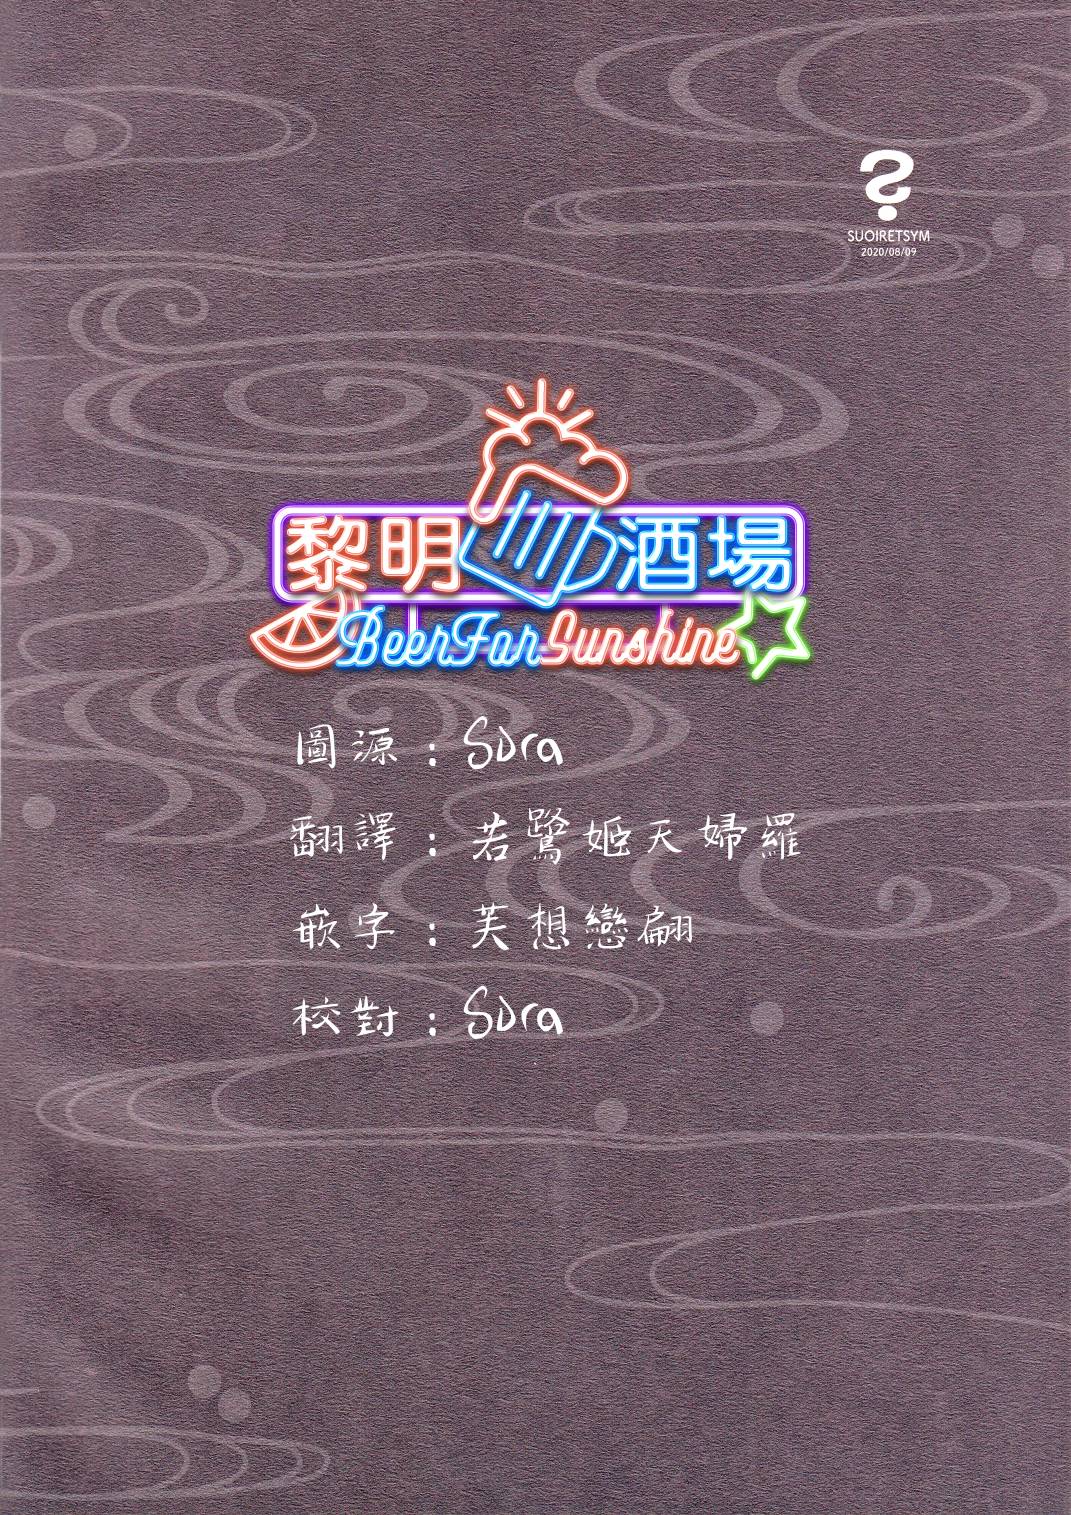 ?
SUOIRETSYM
2020/08/09
黎明酒場
BeerForSunshine
圖源：Sora
翻譯：若鷺姬天婦羅
嵌字：芙想戀翩
校對：Sora